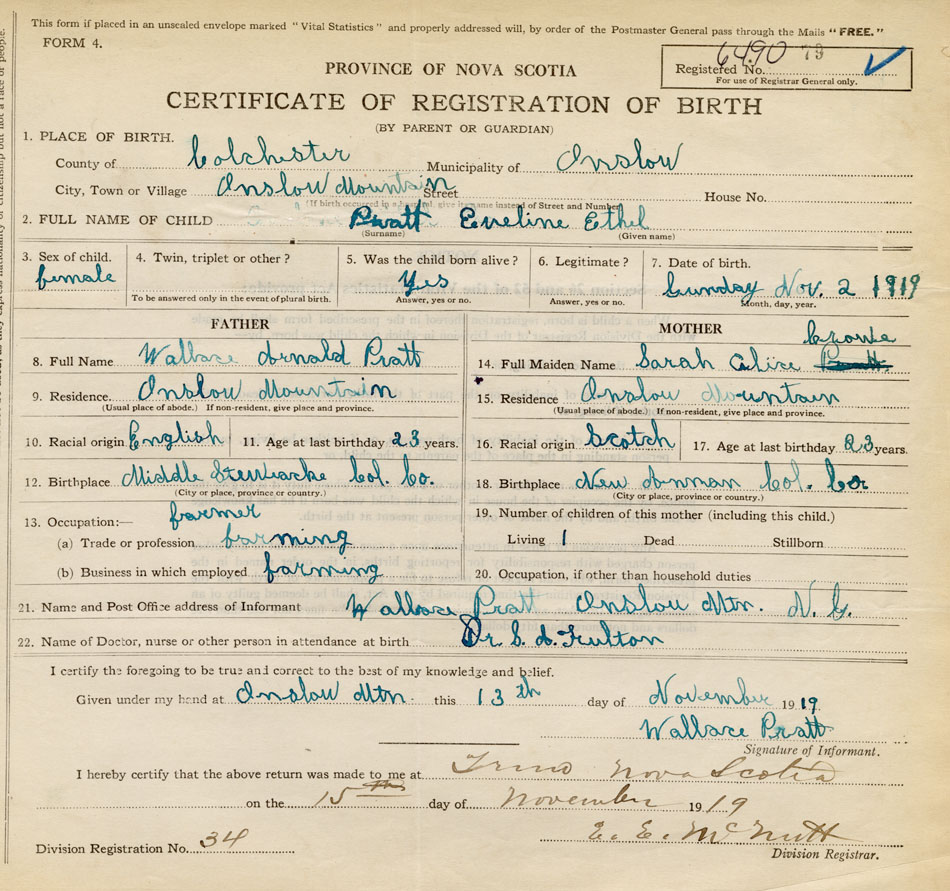 This form if placed in an unsealed envelope marked "Vital Statistics" and properly addressed will, by order of the Postmaster General pass through the Mails "FREE."
FORM 4.
6490 79
Registered No.
For use of Registrar General only.
PROVINCE OF NOVA SCOTIA
CERTIFICATE OF REGISTRATION OF BIRTH
(BY PARENT OR GUARDIAN)
1. PLACE OF BIRTH.
County of Colchester Municipality of Onslow
City, Town or Village Onslow Mountain Street House No.
(If birth occurred in a hospital, give its name instead of Street and Number)
2. FULL NAME OF CHILD Pratt Eveline Ethel
(Surname) (Given name)
3. Sex of child. 4. Twin, triplet or other? 5. Was the child born alive? 6. Legitimate? 7. Date of birth.
female Yes Sunday Nov. 2 1919
To be answered only in the event of plural birth. Answer, yes or no. Answer, yes or no. Month, day, year.
FATHER
8. Full Name Wallace Arnold Pratt
9. Residence. Onslow Mountain
(Usual place of abode.) If non-resident, give place and province.
10. Racial origin English 11. Age at last birthday 23 years.
12. Birthplace Middle Stewiacke Col. Co.
(City or place, province or country.)
13. Occupation:— farmer
(a) Trade or profession farming
(b) Business in which employed farming
MOTHER
Crowe
14. Full Maiden Name Sarah Alice Pratt
15. Residence Onslow Mountain
(Usual place of abode.) If non-resident, give place and province.
16. Racial origin Scotch 17. Age at last birthday 23 years.
18. Birthplace New Annan Col. Co
(City or place, province or country.)
19. Number of children of this mother (including this child.)
Living 1 Dead Stillborn
20. Occupation, if other than household duties
21. Name and Post Office address of Informant Wallace Pratt Onslow Mtn. N. S.
22. Name of Doctor, nurse or other person in attendance at birth Dr. S. A. Fulton
I certify the foregoing to be true and correct to the best of my knowledge and belief.
Given under my hand at Onslow Mtn. this 13th day of November 1919.
Wallace Pratt
Signature of Informant.
I hereby certify that the above return was made to me at Truro Nova Scotia
on the 15th day of November 1919
E. E. McNutt
Division Registration No. 34
Division Registrar.